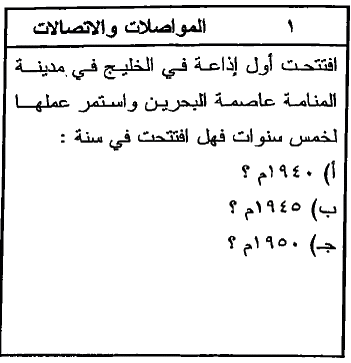 ١ المواصلات والاتصالات
افتتحت أول إذاعة في الخليج في مدينة
المنامة عاصمة البحرين واستمر عملها
لخمس سنوات فهل افتتحت في سنة :
أ) ١٩٤٠م ؟
ب) ١٩٤٥م ؟
جـ) ١٩٥٠م ؟